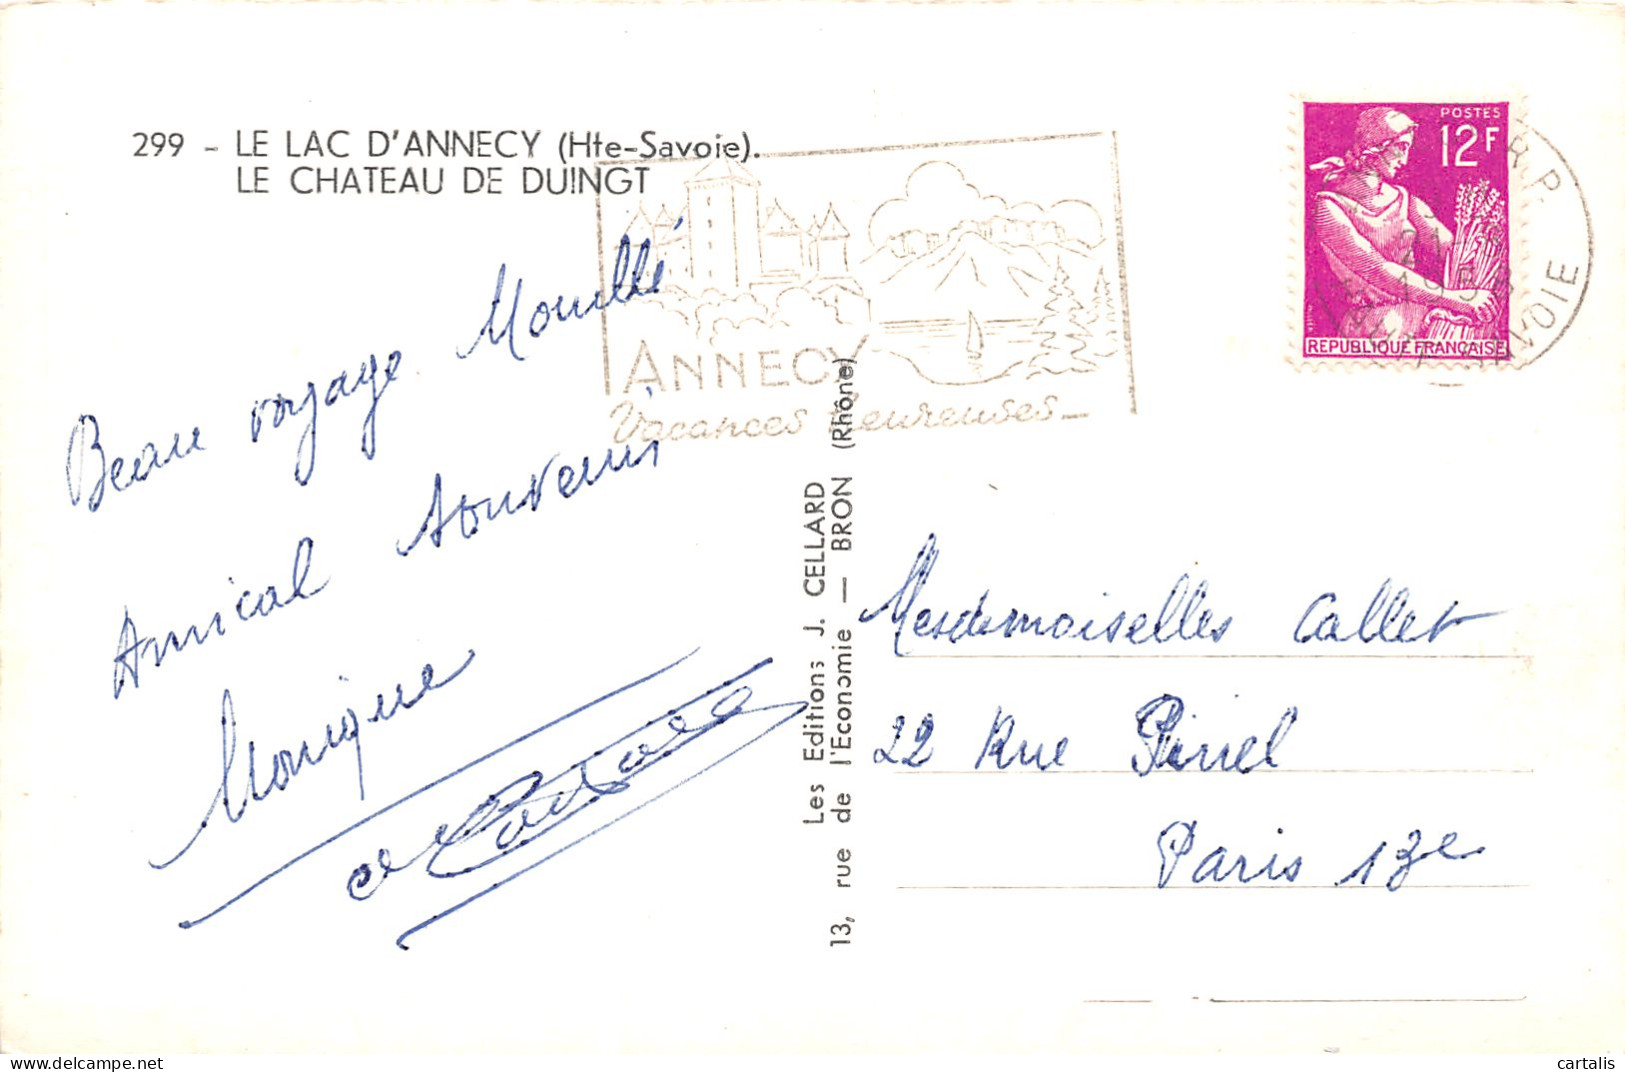 299 - LE LAC D'ANNECY (Hte-Savoie).
LE CHATEAU DE DUINGT
POSTES
12F
REPUBLIQUE FRANÇAISE
R.P.
21
195
SAVOIE
ANNECY
Vacances heureuses
Beau voyage Mouillé
Amical souvenir
Monique
Les Editions J. CELLARD
13, rue de l'Economie — BRON (Rhône)
Mesdemoiselles Callet
22 Rue Pinel
Paris 13e
cartalis